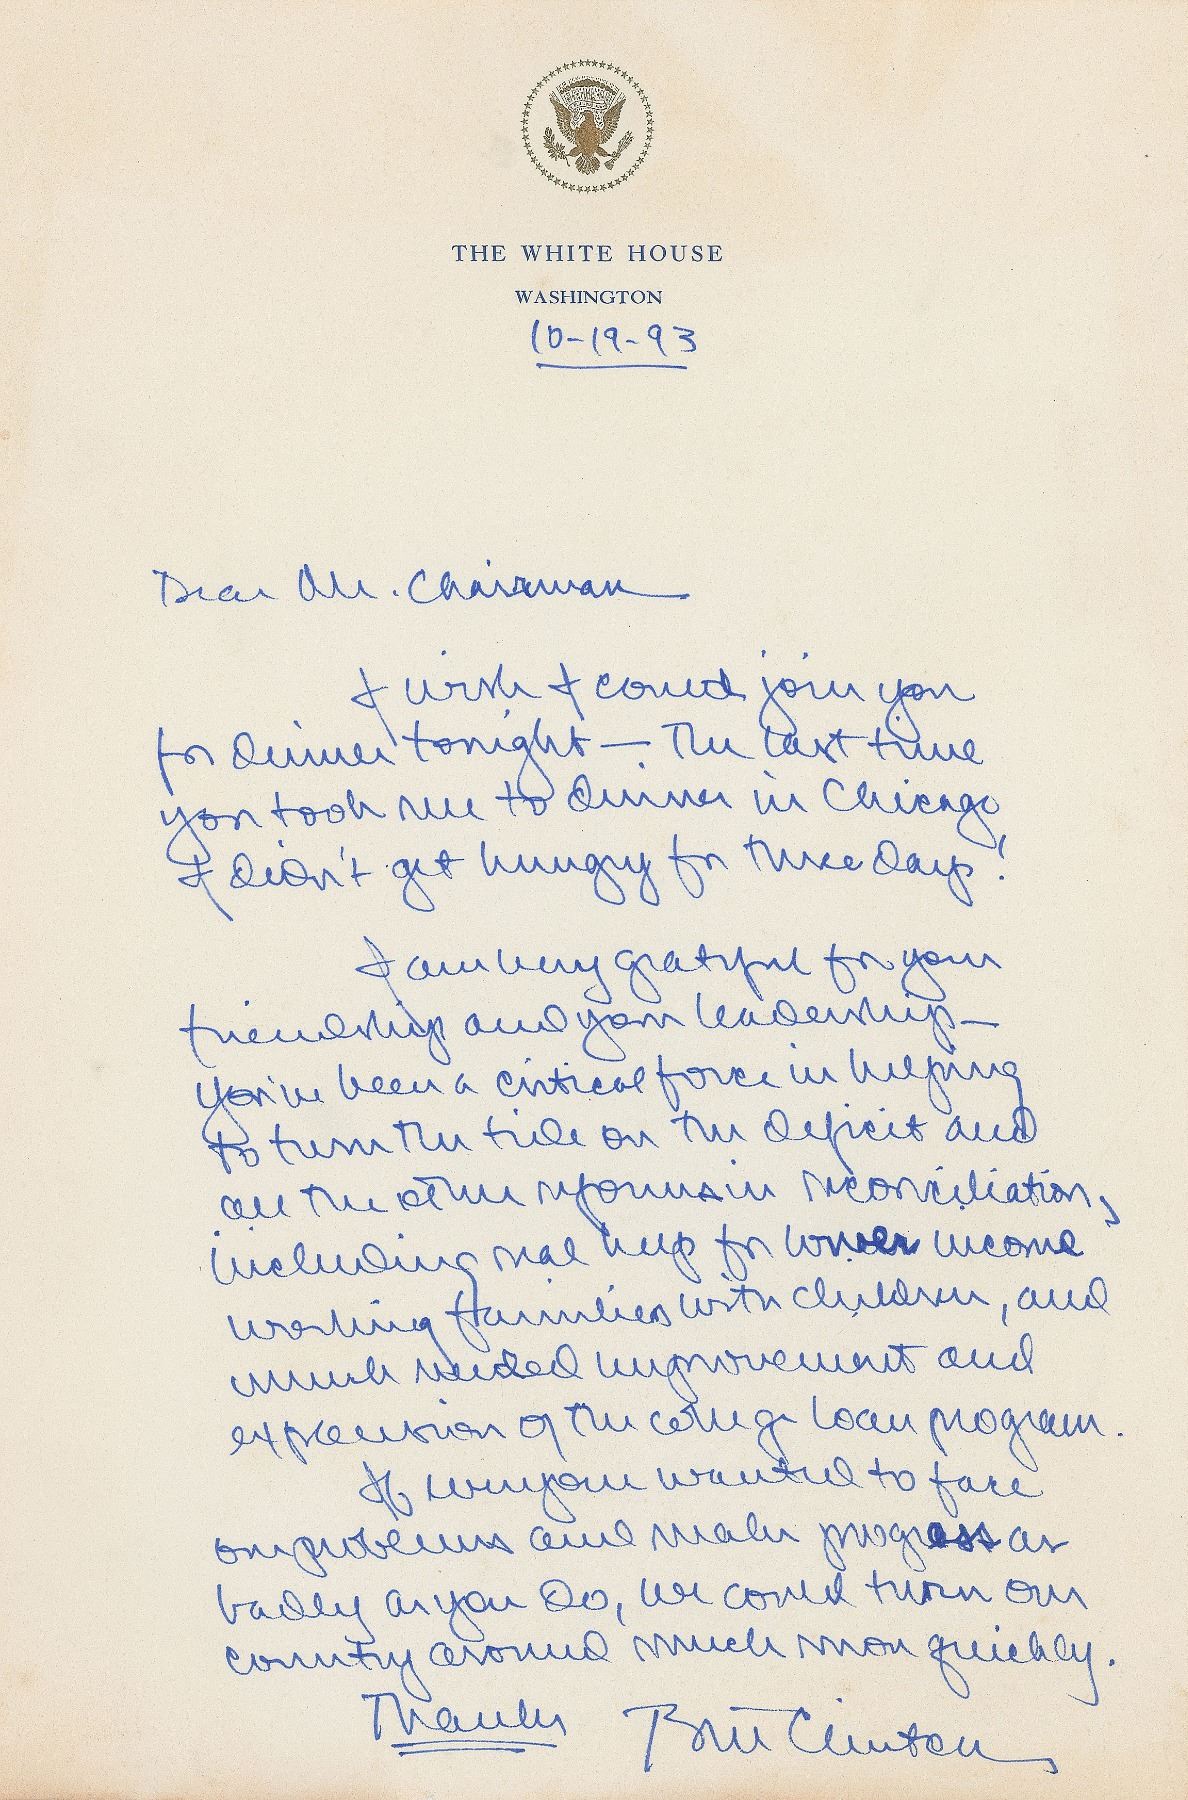 THE WHITE HOUSE
WASHINGTON
10-19-93
Dear Mr. Chairman
I wish I could join you
for dinner tonight — The last time
you took me to dinner in Chicago
I didn't get hungry for three days!
I am very grateful for your
friendship and your leadership —
you've been a critical force in helping
to turn the tide on the deficit and
all the other reforms in reconciliation,
including real help for lower income
working families with children, and
much needed improvement and
expansion of the college loan program.
If everyone wanted to face
our problems and make progress as
badly as you do, we could turn our
country around much more quickly.
Thanks Bill Clinton